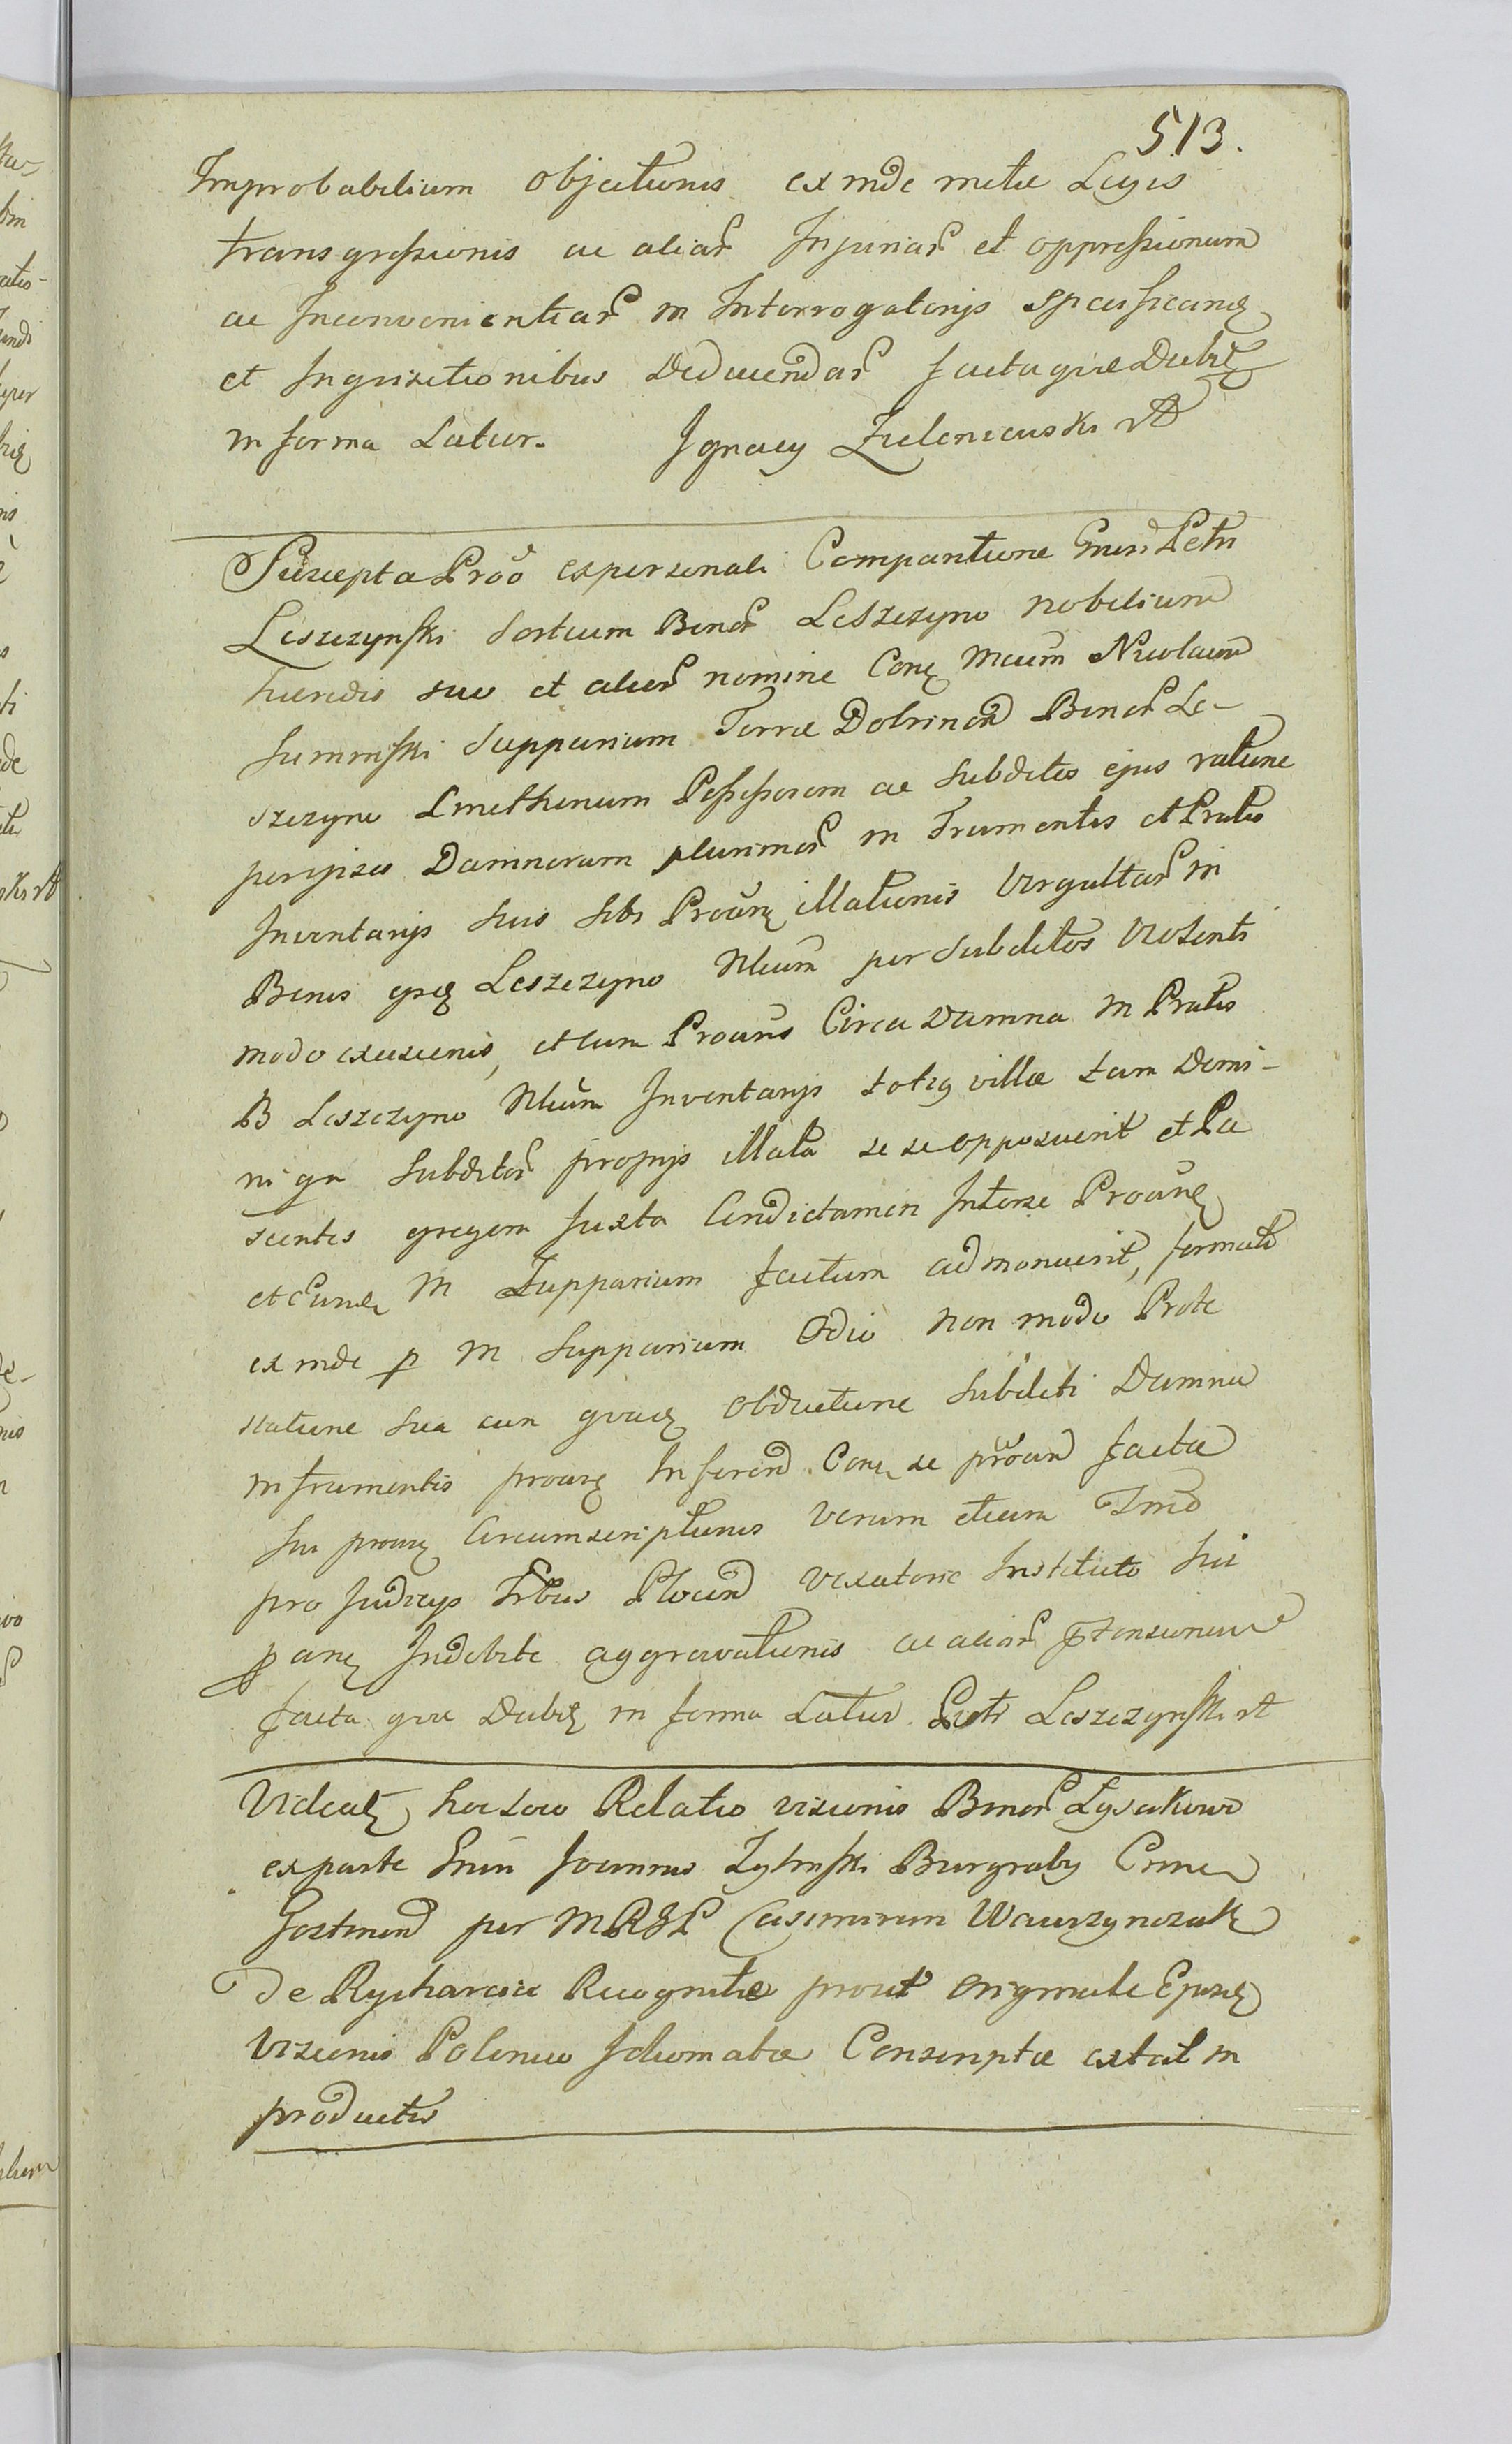 513.
Improbabilium objectionis ex inde metae Legis
transgressionis ac aliar Injuriar et oppressionum
ac Inconvenientiar in Interrogatorijs specificanq
et Inquisitionibus Deducendar factaque Debite
in forma Latur. Ignacy Zieleniewski
Suscepta Pro͠o ex personali Comparitione Gnsi Petri
Leszczynski Sortium Bonor Leszczyno nobilium
haeredis suo et alior nomine Conq Mcum Nicolaum
Suminski Supparium Terrae Dobrinen Bonor Le-
szczyno Kmethonum Possessorem ac Subditos ejus ratione
per ipsos Damnorum plurimor in Frumentis et Pratis
Inventarijs suis sibi Proanq illationis Virgultar in
Bonis ipsis Leszczyno Nlium per Subditos Violenti
modo excisionis, et cum Proans Circa Damna in Pratis
B Leszczyno Nlium Inventarijs totiq villae tam Domi-
ni qm Subditor propijs illata se se opposuerit et Pa
scentes gregem Juxta Condictamen Interse Proanq
et eunde M Zupparium factum admonuerit, formato
ex inde p M Supparium Odio non modo Prote
statione sua cum gravi obductione subditi Damna
in frumentis proanq Inferen Conq se proan facta
sui proanq Circumscriptionis Verum etiam Tmo
pro Judicijs Trbus Plocen vexatorie Instituto sui
panq Indebite aggravationis ac alior ptensionum
facta que Debite in forma Latur. Piotr Leszczynski
Videatq hoc loco Relatio visionis Bonor Lysakowo
ex parte Gnsi Joannis Zylinski Burgrabij C
Gostinen per MRGL Casimirum Wawrzynczak
de Rycharcice Recognitae prout originale Ejusq
Visionis Polonico Idiomate Conscriptae extat in
productis